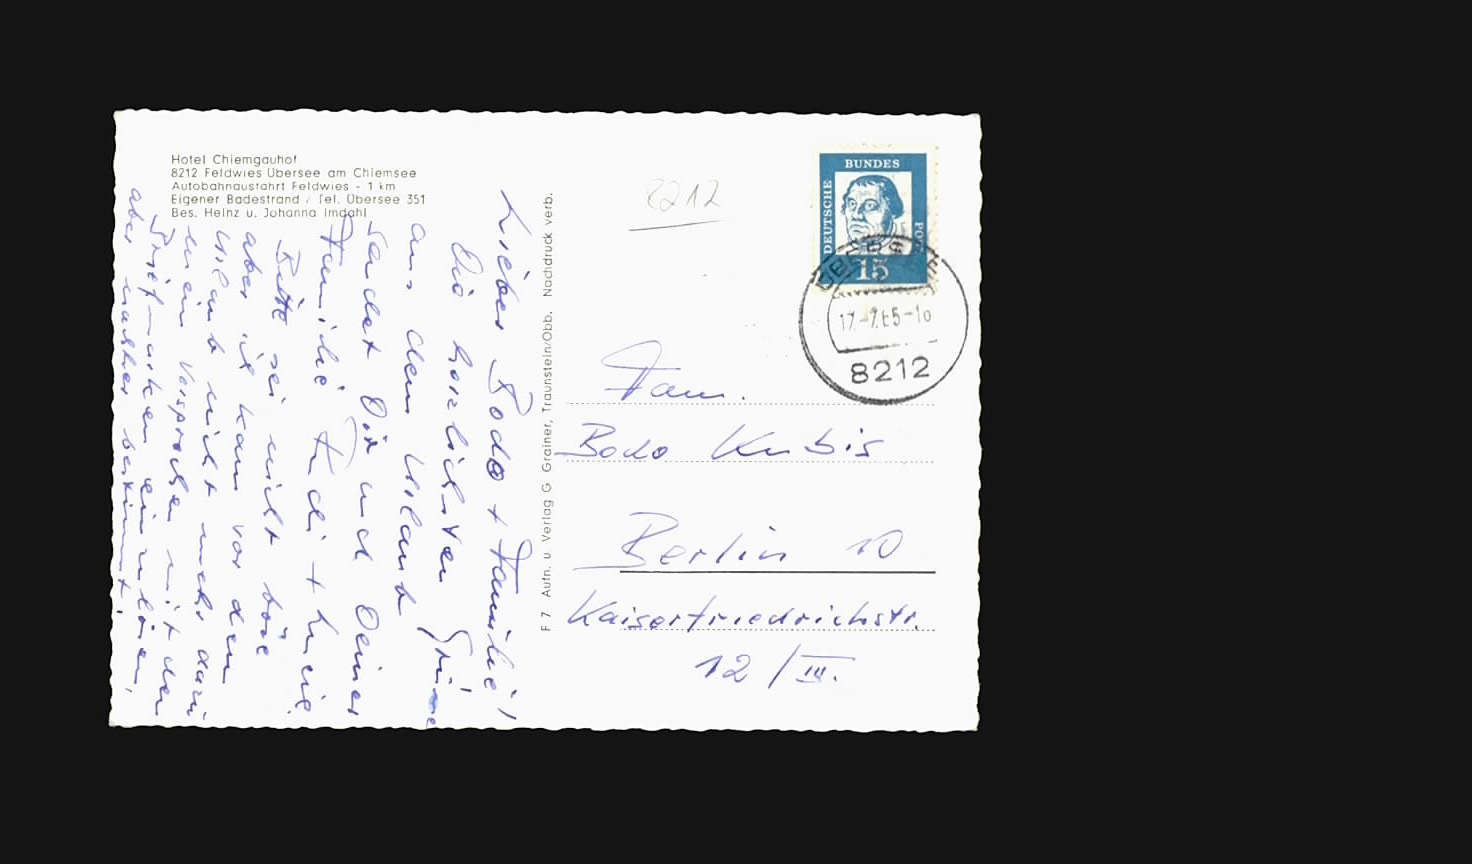 Hotel Chiemgauhof
8212 Feldwies Übersee am Chiemsee
Autobahnausfahrt Feldwies - 1 km
Eigener Badestrand / Tel. Übersee 351
Bes. Heinz u. Johanna Imdahl
Lieber Bodo + Familie!
Die herzlichsten Grüße
aus dem Urlaub
sendet Dir und Deiner
Familie Rudi + Lucie
Bitte sei nicht böse
aber ich kam vor dem
Urlaub nicht mehr dazu
mein Versprechen mit den
Briefmarken einzulösen,
aber nachher bestimmt.
F 7 Aufn. u Verlag G Grainer, Traunstein/Obb. Nachdruck verb.
8212
DEUTSCHE BUNDES POST
15
ÜBERSEE
17.-7.65-10
8212
Fam.
Bodo Kubis
Berlin 10
Kaiserfriedrichstr.
12 / III.